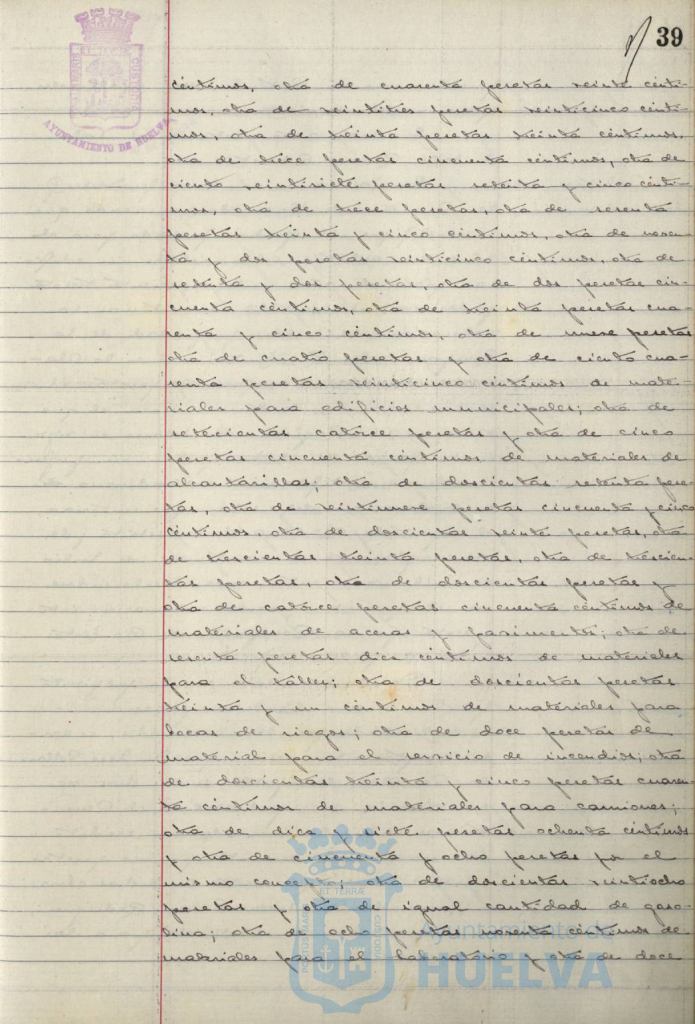 39
AYUNTAMIENTO DE HUELVA
céntimos, otra de cuarenta pesetas veinte cénti-
mos, otra de veintitres pesetas veinticinco cénti-
mos, otra de treinta pesetas treinta céntimos,
otra de trece pesetas cincuenta céntimos, otra de
ciento veintisiete pesetas setenta y cinco cénti-
mos, otra de trece pesetas, otra de sesenta
pesetas treinta y cinco céntimos, otra de noven-
ta y dos pesetas veinticinco céntimos, otra de
setenta y dos pesetas, otra de dos pesetas cin-
cuenta céntimos, otra de treinta pesetas cua-
renta y cinco céntimos, otra de nueve pesetas
otra de cuatro pesetas y otra de ciento cua-
renta pesetas veinticinco céntimos de mate-
riales para edificios municipales; otra de
setecientas catorce pesetas y otra de cinco
pesetas cincuenta céntimos de materiales de
alcantarillas; otra de doscientas setenta pese-
tas, otra de veintinueve pesetas cincuenta y cinco
céntimos, otra de doscientas veinte pesetas, otra
de trescientas treinta pesetas, otra de trescien-
tas pesetas, otra de doscientas pesetas y
otra de catorce pesetas cincuenta céntimos de
materiales de aceras y pavimentos; otra de
sesenta pesetas diez céntimos de materiales
para el taller; otra de doscientas pesetas
treinta y un céntimos de materiales para
bocas de riegos; otra de doce pesetas de
material para el servicio de incendios; otra
de doscientas treinta y cinco pesetas cuaren-
ta céntimos de materiales para camiones;
otra de diez y siete pesetas ochenta céntimos
y otra de cincuenta y ocho pesetas por el
mismo concepto; otra de doscientas veintiocho
pesetas y otra de igual cantidad de gaso-
lina; otra de ocho pesetas noventa céntimos de
materiales para el laboratorio y otra de doce
Ayuntamiento de
HUELVA